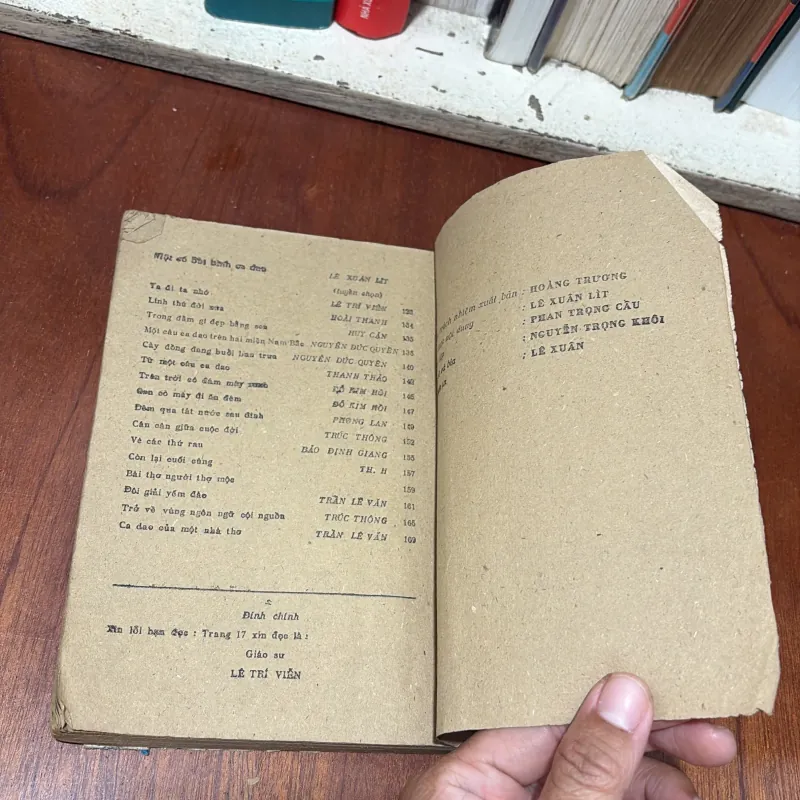 NHÀ XU
Một số bài bình ca dao
LÊ XUÂN LÍT
(tuyển chọn)
Ta đi ta nhớ LÊ TRÍ VIỄN
Lính thú đời xưa HOÀI THANH 134
Trong đầm gì đẹp bằng sen HUY CẬN 135
Một câu ca dao trên hai miền Nam Bắc NGUYỄN ĐỨC QUYỀN
Cày đồng đang buổi ban trưa NGUYỄN ĐỨC QUYỀN 140
Từ một câu ca dao THANH THẢO
Trên trời có đám mây xanh ĐỖ KIM HỒI 145
Gan có máy đi ăn đêm ĐỖ KIM HỒI 147
Đêm qua tát nước sau đình PHONG LAN
Câu căn giữa cuộc đời TRÚC THÔNG 152
Vè các thứ rau BẢO ĐỊNH GIANG 155
Còn lại cuối cùng TH. H 157
Bài thơ người thợ mộc 159
Đôi giải yếm đào TRẦN LÊ VĂN 161
Trở về vùng ngôn ngữ cội nguồn TRÚC THÔNG 165
Ca dao của một nhà thơ TRẦN LÊ VĂN 169
Đính chính
Xin lỗi bạn đọc : Trang 17 xin đọc là :
Giáo sư
LÊ TRÍ VIỄN
trách nhiệm xuất bản : HOÀNG TRƯƠNG
nội dung : LÊ XUÂN LÍT
: PHAN TRỌNG CẦU
: NGUYỄN TRỌNG KHÔI
: LÊ XUÂN